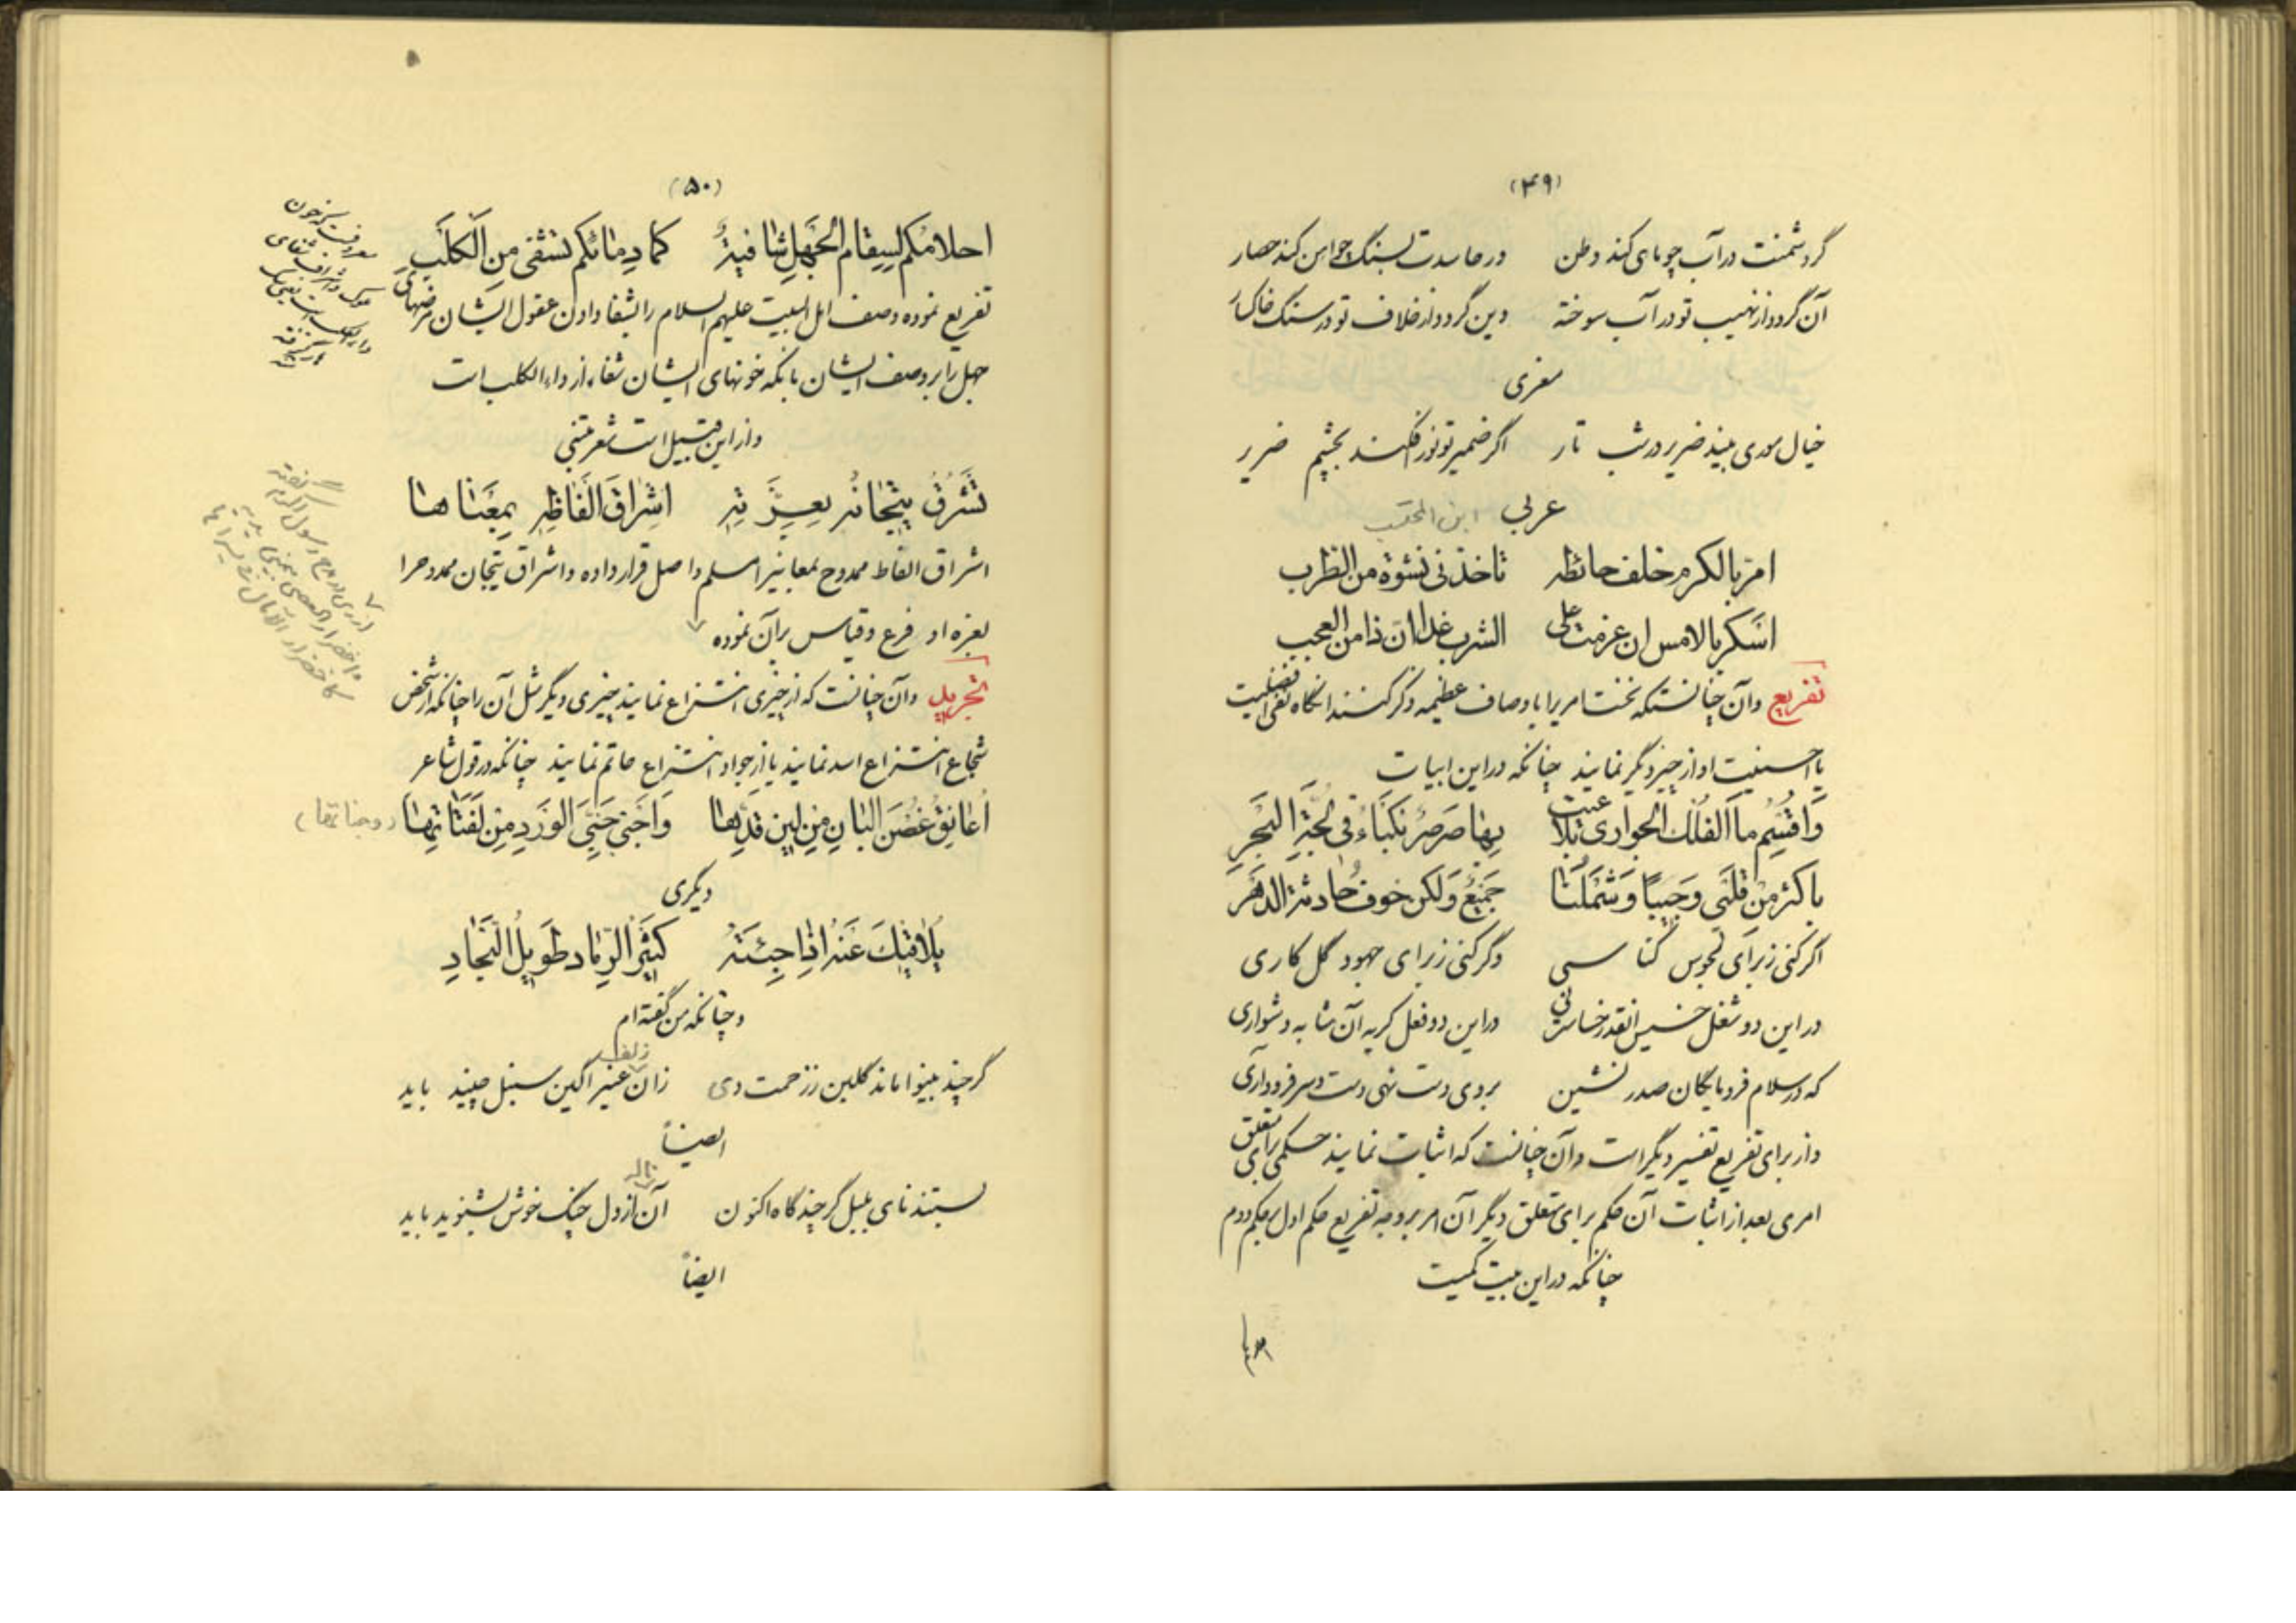 (۴۹)
گر دشمنت در آب چو ماهی کند وطن ور حاسدت بسنگ چو آهن کند حصار
آن گردد از نهیب تو در آب سوخته وین گردد از خلاف تو در سنگ خاکسار
معزی
خیال موری بیند ضریر در شب تار اگر ضمیر تو نور افکند بچشم ضریر
عربی
امر بالکرم خلف حائطه تاخذنی نشوة من الطرب
اسکر بالامس ان عزمت علی الشرب غدا ان ذا من العجب
تفریع وآن چنانستکه نخست امری را باوصاف عظیمه ذکر کنند انگاه نفی افضلیت
یا احسنیت او از چیز دیگر نمایند چنانکه در این ابیات
وَاُقْسِمُ ما الفُلْکُ الجواری تلاعبت بِها صَرصَرٌ نَکباءُ فی لُجَّةِ البَحرِ
باکثرَ مِنْ قَلبی وَجیبًا وَشَملُنا جَمیعٌ وَلکن خوفُ حادثة الدهر
اگر کنی ز برای مجوس کناسی وگر کنی ز برای جهود گل کاری
در این دو شغل خسیس انقدر خساست نی در این دو فعل کریه آن مشابه دشواری
که در سلام فرومایگان صدر نشین بروی دست نهی دست و سر فرود آری
واز برای تفریع تفسیر دیگر است وآن چنانست که اثبات نمایند حکمی برای متعلق
امری بعد از اثبات آن حکم برای متعلق دیگر آن امر بر وجه تفریع حکم اول بر حکم دوم
چنانکه در این بیت کمیت
احلام
(۵۰)
احلامُکُم لِسِقام الجَهلِ شافیةٌ کما دِمائکُم تشفی مِن الکَلَبِ
تفریع نموده وصف اهل البیت علیهم السلام را بشفا دادن عقول ایشان مرضهای
جهل را بر وصف ایشان بانکه خونهای ایشان شفاء از داء الکلب است
واز این قبیل است شعر متنبی
تَشرُقُ تیجانُه بِعِزَّتِه اِشراقَ اَلفاظِه بِمَعناها
اشراق الفاظ ممدوح بمعانیرا مسلم و اصل قرار داده و اشراق تیجان ممدوح را
بعزه او فرع و قیاس بر آن نموده
تجرید وآن چنانست که از چیزی انتزاع نمایند چیزی دیگر مثل آن را چنانکه از شخص
شجاع انتزاع اسد نمایند یا از جواد انتزاع حاتم نمایند چنانکه در قول شاعر
اُعانِقُ غُصنَ البانِ مِن لینِ قَدِّها وَاَجنی جَنِیَّ الوَردِ مِن لَفَتاتِها (وجناتها)
دیگری
یُلاقیکَ عَنهُ اِذا جِئتَهُ کَثیرُ الرَّماد طَویلُ النَّجادِ
و چنانکه من گفته‌ام
گر چند بینوا ماند گلبن ز زحمت دی زان زلف عنبر آگین سنبل چنید باید
ایضاً
بستند نای بلبل گر چند گاه اکنون آن ناله از دل چنگ خوش بشنوید باید
ایضاً